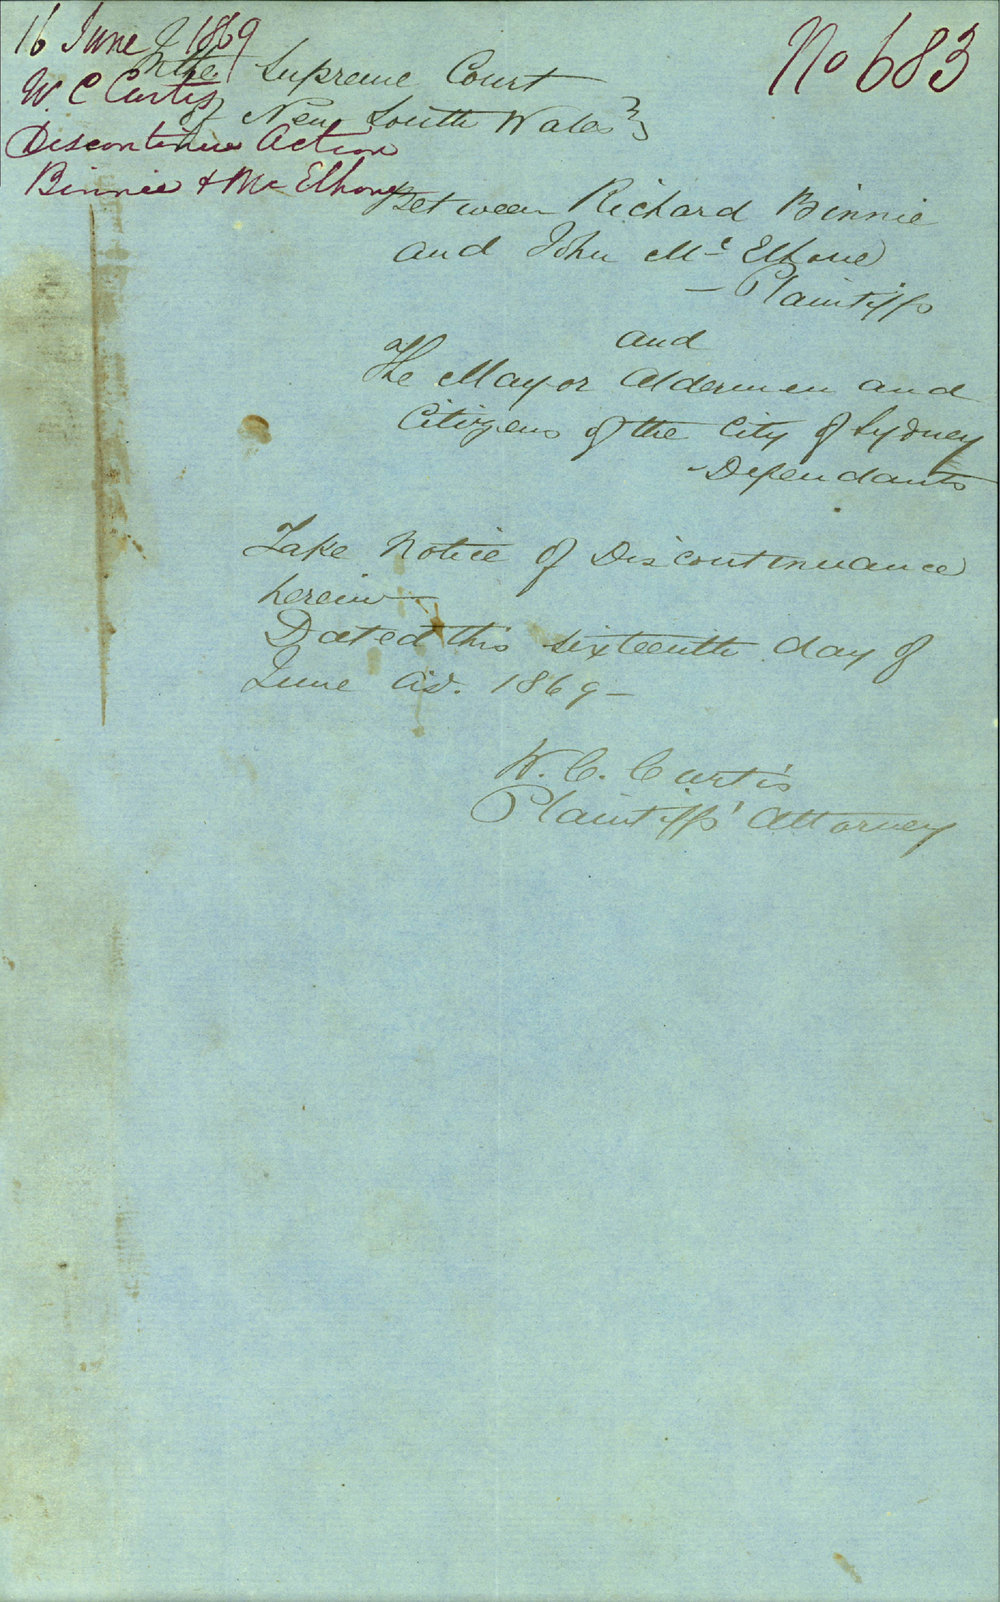 16 June 1869
W. C Curtis
Discontinue Action
Binnie & Mc Elhone
No 683
In the Supreme Court
of New South Wales
Between Richard Binnie
and John Mc Elhone
- Plaintiffs
and
The Mayor Aldermen and
Citizens of the City of Sydney
- Defendants
Take Notice of Discontinuance
herein —
Dated this sixteenth day of
June A.D. 1869 —
W. C. Curtis
Plaintiffs' Attorney